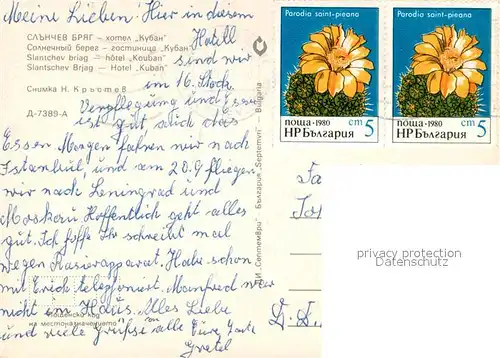 Meine Lieben! Hier in diesem
Hotell
СЛЪНЧЕВ БРЯГ — хотел „Кубан"
Солнечный берег — гостиница „Кубан"
Slantchev briag — hôtel „Kouban"
Slantschev Brjag — Hotel „Kuban"
sind wir
im 16. Stock.
Снимка Н. Кръстев
Д-7389-А
Verpflegung und
ist gut auch das
Essen Morgen fahren wir nach
Istanbul, und am 20.9 fliegen
wir nach Leningrad und
Moskau Hoffentlich geht alles
gut. Ich hoffe Ihr schreibt mal
wegen Rasierapparat. Habe schon
mit Erich telephoniert. Manfred war
nicht im Haus. Alles Liebe
und viele Grüße alle Eure Tante
Gretel
Пощенски код
на местоназначението
ДИ „Септември" България „Septemvri" Bulgaria
Parodia saint-pieana
поща·1980 cm 5
НРБЪлгария
Parodia saint-pieana
поща·1980 cm 5
НРБЪлгария
privacy protection
Datenschutz